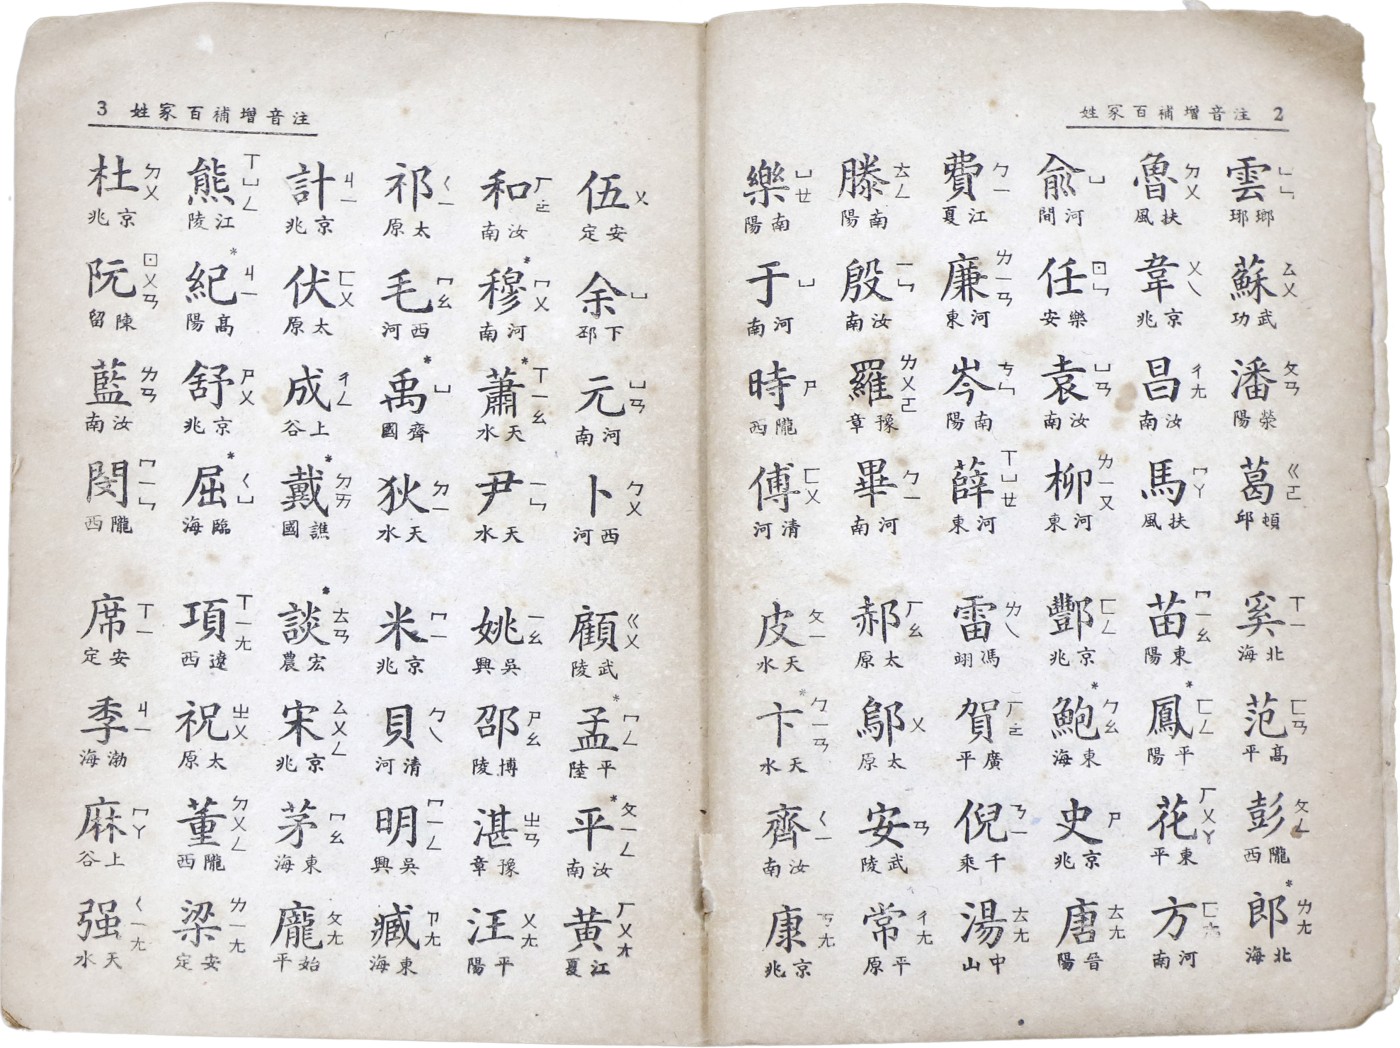 2 注音增補百家姓
雲 ㄩㄣ 瑯琊 蘇 ㄙㄨ 武功 潘 ㄆㄢ 滎陽 葛 ㄍㄜ 頓邱 奚 ㄒㄧ 北海 范 ㄈㄢ 高平 彭 ㄆㄥ 隴西 郎* ㄌㄤ 北海
魯 ㄌㄨ 扶風 韋 ㄨㄟ 京兆 昌 ㄔㄤ 汝南 馬 ㄇㄚ 扶風 苗 ㄇㄧㄠ 東陽 鳳* ㄈㄥ 平陽 花 ㄏㄨㄚ 東平 方 ㄈㄤ 河南
俞 ㄩ 河間 任 ㄖㄣ 樂安 袁 ㄩㄢ 汝南 柳 ㄌㄧㄡ 河東 酆 ㄈㄥ 京兆 鮑* ㄅㄠ 東海 史 ㄕ 京兆 唐 ㄊㄤ 晉陽
費 ㄅㄧ 江夏 廉 ㄌㄧㄢ 河東 岑 ㄘㄣ 南陽 薛 ㄒㄩㄝ 河東 雷 ㄌㄟ 馮翊 賀 ㄏㄜ 廣平 倪 ㄋㄧ 千乘 湯 ㄊㄤ 中山
滕 ㄊㄥ 南陽 殷 ㄧㄣ 汝南 羅 ㄌㄨㄛ 豫章 畢 ㄅㄧ 河南 郝 ㄏㄠ 太原 鄔 ㄨ 太原 安 ㄢ 武陵 常 ㄔㄤ 平原
樂 ㄩㄝ 南陽 于 ㄩ 河南 時 ㄕ 隴西 傅 ㄈㄨ 清河 皮 ㄆㄧ 天水 卞* ㄅㄧㄢ 天水 齊 ㄑㄧ 汝南 康 ㄎㄤ 京兆
注音增補百家姓 3
伍 ㄨ 安定 余 ㄩ 下邳 元 ㄩㄢ 河南 卜 ㄅㄨ 西河 顧 ㄍㄨ 武陵 孟* ㄇㄥ 平陸 平* ㄆㄧㄥ 汝南 黃 ㄏㄨㄤ 江夏
和 ㄏㄜ 汝南 穆* ㄇㄨ 河南 蕭* ㄒㄧㄠ 天水 尹 ㄧㄣ 天水 姚 ㄧㄠ 吳興 邵 ㄕㄠ 博陵 湛 ㄓㄢ 豫章 汪 ㄨㄤ 平陽
祁 ㄑㄧ 太原 毛 ㄇㄠ 西河 禹* ㄩ 齊國 狄 ㄉㄧ 天水 米 ㄇㄧ 京兆 貝 ㄅㄟ 清河 明 ㄇㄧㄥ 吳興 臧 ㄗㄤ 東海
計 ㄐㄧ 京兆 伏 ㄈㄨ 太原 成 ㄔㄥ 上谷 戴* ㄉㄞ 譙國 談* ㄊㄢ 宏農 宋 ㄙㄨㄥ 京兆 茅 ㄇㄠ 東海 龐 ㄆㄤ 始平
熊 ㄒㄩㄥ 江陵 紀* ㄐㄧ 高陽 舒 ㄕㄨ 京兆 屈* ㄑㄩ 臨海 項 ㄒㄧㄤ 遼西 祝 ㄓㄨ 太原 董 ㄉㄨㄥ 隴西 梁 ㄌㄧㄤ 安定
杜 ㄉㄨ 京兆 阮 ㄖㄨㄢ 陳留 藍 ㄌㄢ 汝南 閔 ㄇㄧㄣ 隴西 席 ㄒㄧ 安定 季 ㄐㄧ 渤海 麻 ㄇㄚ 上谷 强 ㄑㄧㄤ 天水